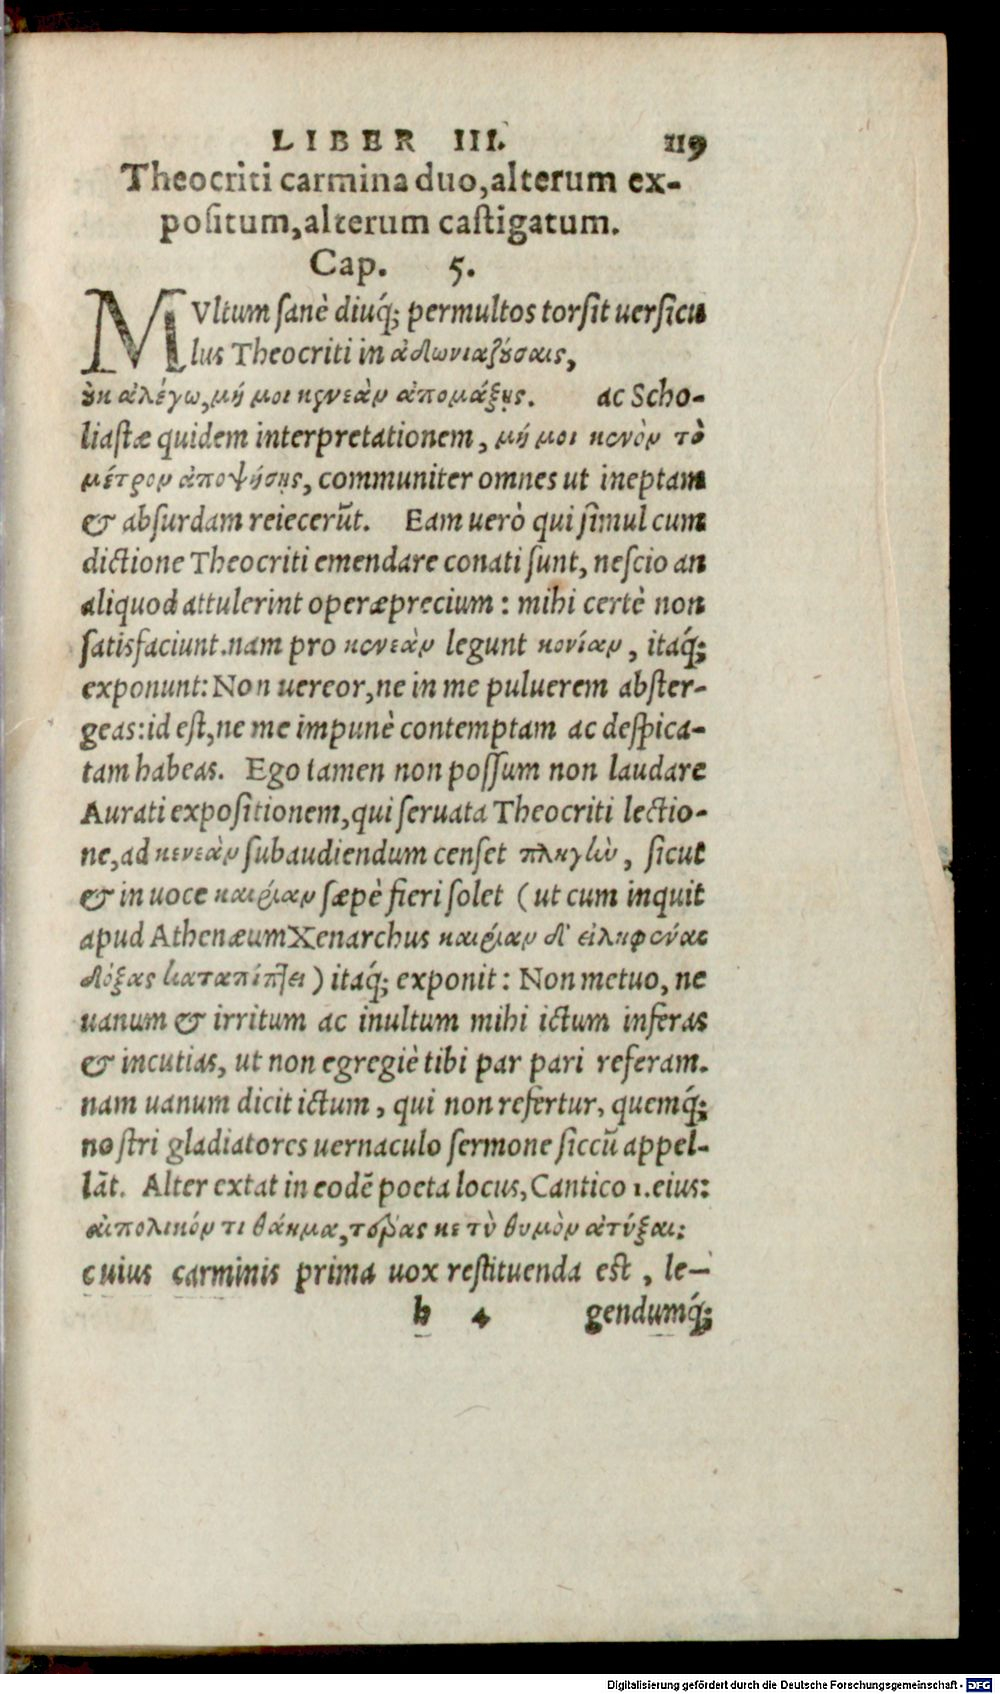 LIBER III. 119
Theocriti carmina duo, alterum ex-
positum, alterum castigatum.
Cap. 5.
MVltum sanè diuq́; permultos torsit uersicu
lus Theocriti in ἀδωνιαζούσαις,
οὐκ ἀλέγω, μή μοι κενεὰν ἀπομάξῃς. ac Scho-
liastæ quidem interpretationem, μή μοι κενὸν τὸ
μέτρον ἀποψήσῃς, communiter omnes ut ineptam
& absurdam reiecerũt. Eam uerò qui simul cum
dictione Theocriti emendare conati sunt, nescio an
aliquod attulerint operæprecium: mihi certè non
satisfaciunt. nam pro κενεὰν legunt κονίαν, itaq́;
exponunt: Non uereor, ne in me puluerem abster-
geas: id est, ne me impunè contemptam ac despica-
tam habeas. Ego tamen non possum non laudare
Aurati expositionem, qui seruata Theocriti lectio-
ne, ad κενεὰν subaudiendum censet πληγὼ, sicut
& in uoce καιρίαν sæpè fieri solet (ut cum inquit
apud Athenæum Xenarchus καιρίαν δ' εἰληφυίας
δόξας καταπίπτει) itaq́; exponit: Non metuo, ne
uanum & irritum ac inultum mihi ictum inferas
& incutias, ut non egregiè tibi par pari referam.
nam uanum dicit ictum, qui non refertur, quemq́;
nostri gladiatores uernaculo sermone siccũ appel-
lãt. Alter extat in eodẽ poeta locus, Cantico 1. eius:
αἰπολικόν τι θάημα, τέρας κε τὺ θυμὸν ἀτύξαι:
cuius carminis prima uox restituenda est, le-
h 4 gendumq́;
Digitalisierung gefördert durch die Deutsche Forschungsgemeinschaft - DFG